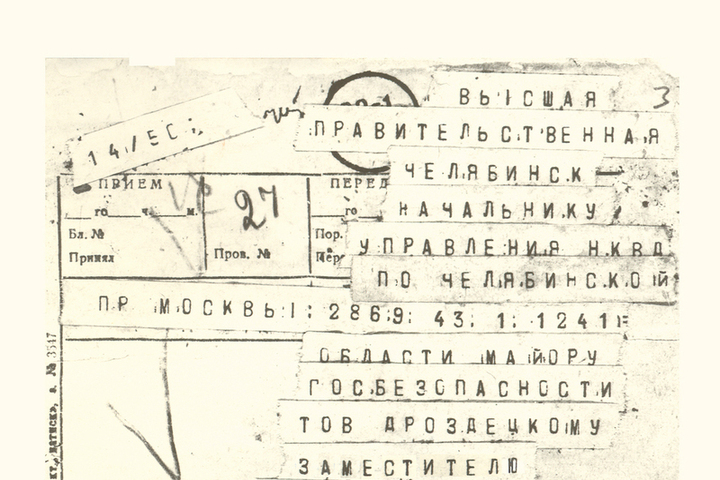 ВЫСШАЯ
3
ПРАВИТЕЛЬСТВЕННАЯ
14/ЕС:
ЧЕЛЯБИНСК —
ПРИЕМ
ПЕРЕД
27
НАЧАЛЬНИКУ
го ч. м.
го
Бл. №
Пор.
УПРАВЛЕНИЯ НКВД
Принял
Пров. №
Пер
ПО ЧЕЛЯБИНСКОЙ
ПР МОСКВЫ: 2869: 43: 1: 1241=
ОБЛАСТИ МАЙОРУ
ГОСБЕЗОПАСНОСТИ
ТОВ ДРОЗДЕЦКОМУ
ЗАМЕСТИТЕЛЮ
з. № 3547